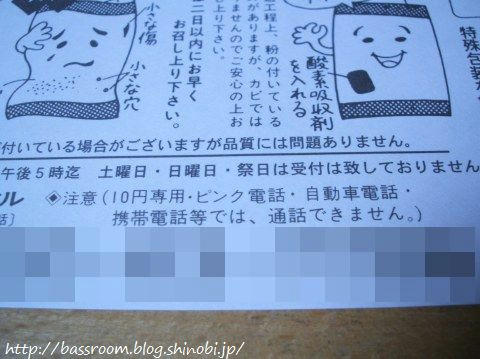 特殊包装
酸素吸収剤
を入れる
工程上、粉の付いている
がありますが、カビでは
ませんのでご安心の上お
し上り下さい。
二日以内にお早く
お召し上り下さい。
小さな傷
小さな穴
付いている場合がございますが品質には問題ありません。
午後5時迄 土曜日・日曜日・祭日は受付は致しておりません
ル ◈注意(10円専用・ピンク電話・自動車電話・
話〕 携帯電話等では、通話できません。)
http://bassroom.blog.shinobi.jp/